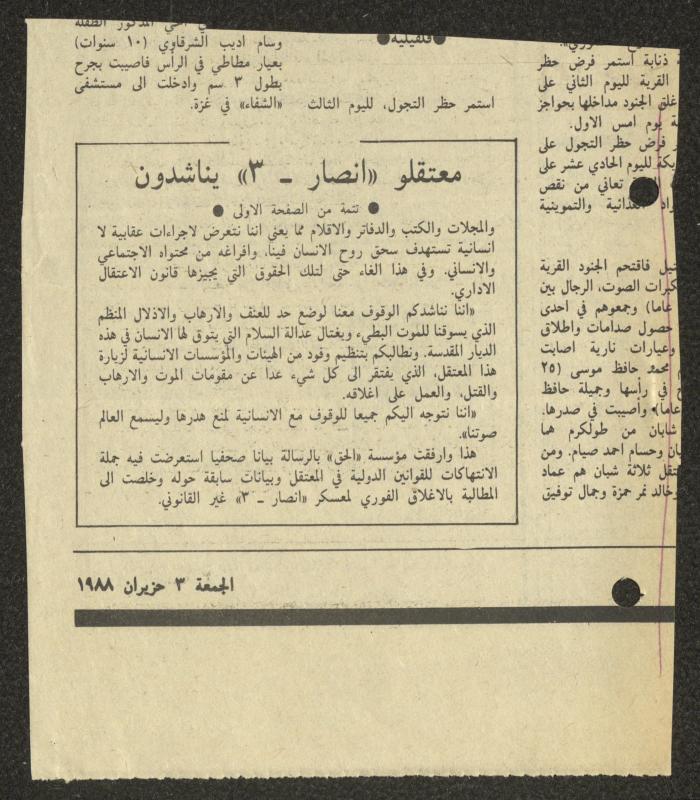 ة ذنابة استمر فرض حظر
القرية لليوم الثاني على
غلق الجنود مداخلها بحواجز
ة يوم امس الاول.
ر فرض حظر التجول على
لليوم الحادي عشر على
تعاني من نقص
الغذائية والتموينية
فاقتحم الجنود القرية
الصوت، الرجال بين
عاما) وجمعوهم في احدى
حصول صدامات واطلاق
وعيارات نارية اصابت
محمد حافظ موسى (٢٥
في رأسها وجميلة حافظ
عاما) وأصيبت في صدرها.
شابان من طولكرم هما
وحسام احمد صيام. ومن
ثلاثة شبان هم عماد
وخالد نمر حمزة وجمال توفيق
●قلقيلية●
استمر حظر التجول، لليوم الثالث
المذكور الطفلة
وسام اديب الشرقاوي (١٠ سنوات)
بعيار مطاطي في الرأس فاصيبت بجرح
بطول ٣ سم وادخلت الى مستشفى
«الشفاء» في غزة.
معتقلو «انصار ـ ٣» يناشدون
● تتمة من الصفحة الاولى ●
والمجلات والكتب والدفاتر والاقلام مما يعني اننا نتعرض لاجراءات عقابية لا
انسانية تستهدف سحق روح الانسان فينا، وافراغه من محتواه الاجتماعي
والانساني. وفي هذا الغاء حتى لتلك الحقوق التي يجيزها قانون الاعتقال
الاداري.
«اننا نناشدكم الوقوف معنا لوضع حد للعنف والارهاب والاذلال المنظم
الذي يسوقنا للموت البطيء ويغتال عدالة السلام التي يتوق لها الانسان في هذه
الديار المقدسة. ونطالبكم بتنظيم وفود من الهيئات والمؤسسات الانسانية لزيارة
هذا المعتقل، الذي يفتقر الى كل شيء عدا عن مقومات الموت والارهاب
والقتل، والعمل على اغلاقه.
«اننا نتوجه اليكم جميعا للوقوف مع الانسانية لمنع هدرها وليسمع العالم
صوتنا».
هذا وارفقت مؤسسة «الحق» بالرسالة بيانا صحفيا استعرضت فيه جملة
الانتهاكات للقوانين الدولية في المعتقل وبيانات سابقة حوله وخلصت الى
المطالبة بالاغلاق الفوري لمعسكر «انصار ـ ٣» غير القانوني.
الجمعة ٣ حزيران ١٩٨٨